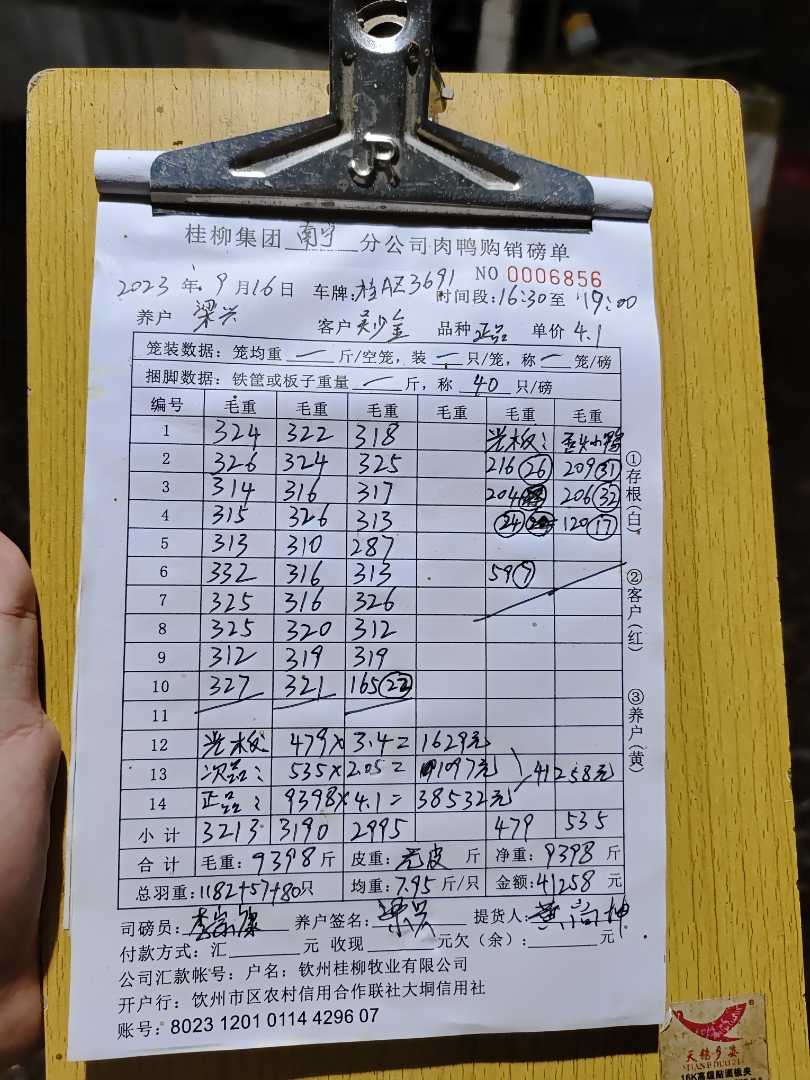 JR
桂柳集团 南宁 分公司肉鸭购销磅单
NO 0006856
2023年9月16日 车牌:桂AZ3691 时间段:16:30至19:00
养户 梁兴 客户 吴少金 品种 正品 单价 4.1
笼装数据:笼均重 一 斤/空笼,装 一 只/笼,称 一 笼/磅
捆脚数据:铁筐或板子重量 一 斤,称 40 只/磅
编号 毛重 毛重 毛重 毛重 毛重 毛重
1 324 322 318 光板: 歪头小鸭
2 326 324 325 216(26) 209(31)
3 314 316 317 204 206(32)
4 315 326 313 (24) 120(17)
5 313 310 287
6 332 316 313 59(7)
7 325 316 326
8 325 320 312
9 312 319 319
10 327 321 165(22)
11
12 光板: 479×3.4=1629元
13 次品: 535×2.05=1097元 41258元
14 正品: 9398×4.1=38532元
小计 3213 3190 2995 479 535
合计 毛重:9398斤 皮重:光皮 斤 净重:9398斤
总羽重:1182+57+80只 均重:7.95斤/只 金额:41258元
司磅员: 养户签名:梁兴 提货人:
付款方式:汇 元 收现 元欠(余): 元
公司汇款帐号:户名:钦州桂柳牧业有限公司
开户行:饮州市区农村信用合作联社大垌信用社
账号:8023 1201 0114 4296 07
①存根(白)
②客户(红)
③养户(黄)
16K高级贴面板夹